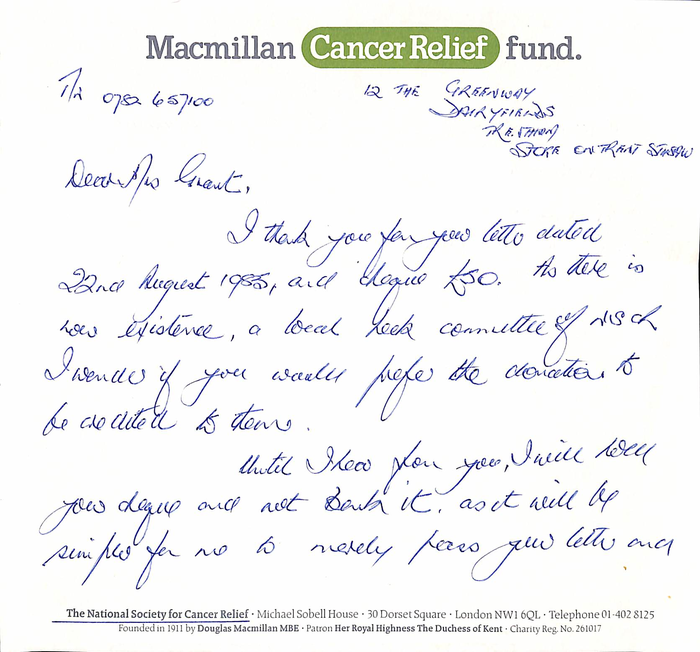 Macmillan Cancer Relief fund.
T/N 0782 657100
12 THE GREENWAY
DAIRYFIELDS
TRENTHAM
STOKE ON TRENT
Dear Mrs Grant,
I thank you for your letter dated
22nd August 1985, and cheque £50. As there is
now existence, a local Leek committee of NSCR
I wonder if you would prefer the donation to
be credited to them.
Until I hear from you, I will hold
your cheque and not bank it, as it will be
simpler for me to merely pass your letter and
The National Society for Cancer Relief · Michael Sobell House · 30 Dorset Square · London NW1 6QL · Telephone 01-402 8125
Founded in 1911 by Douglas Macmillan MBE · Patron Her Royal Highness The Duchess of Kent · Charity Reg. No. 261017